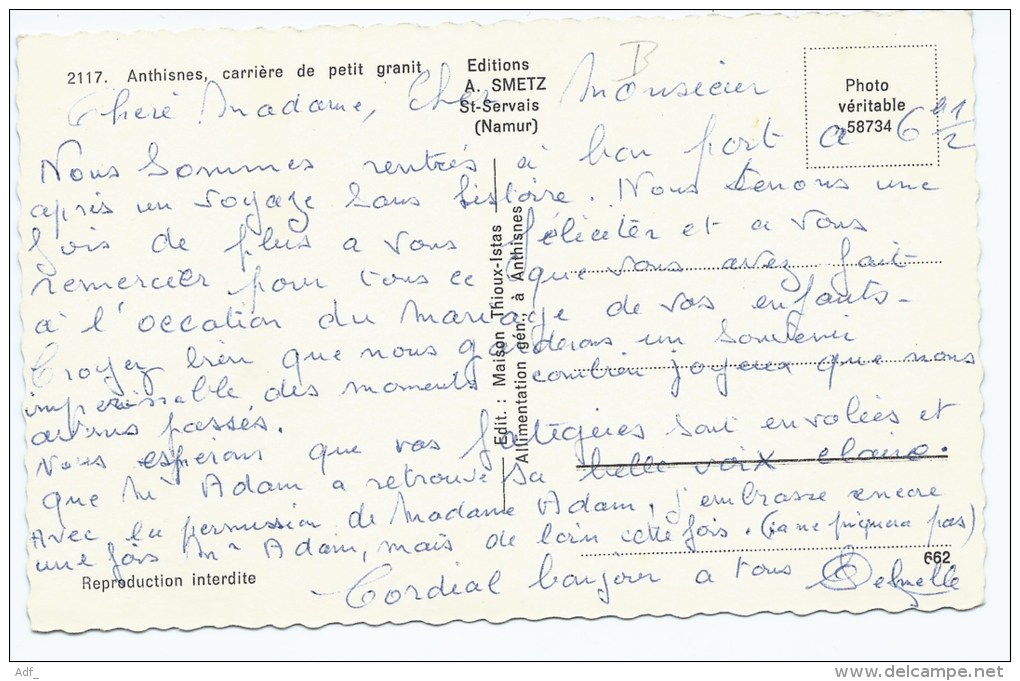 2117. Anthisnes, carrière de petit granit
Editions
A. SMETZ
St-Servais
(Namur)
Photo
véritable
58734
B
Chère Madame, Cher Monsieur
Nous sommes rentrés à bon port a 6 h 1/2
après un voyage sans histoire. Nous tenons une
fois de plus a vous féliciter et a vous
remercier pour tous ce que vous avez fait
à l'occation du mariage de vos enfants-
Croyez bien que nous garderons un souvenir
impérissable des moments combien joyeux que nous
avons passés.
Nous espérons que vos fatigues sont envolées et
que Mr Adam a retrouvé sa belle voix claire.
Avec la permission de Madame Adam, j'embrasse encore
une fois Mr Adam, mais de loin cette fois. (ça ne piquera pas)
Cordial bonjour a tous Delmelle
Edit. : Maison Thioux-Istas
Allimentation gén., à Anthisnes
Reproduction interdite
662
Adf_
www.delcampe.net